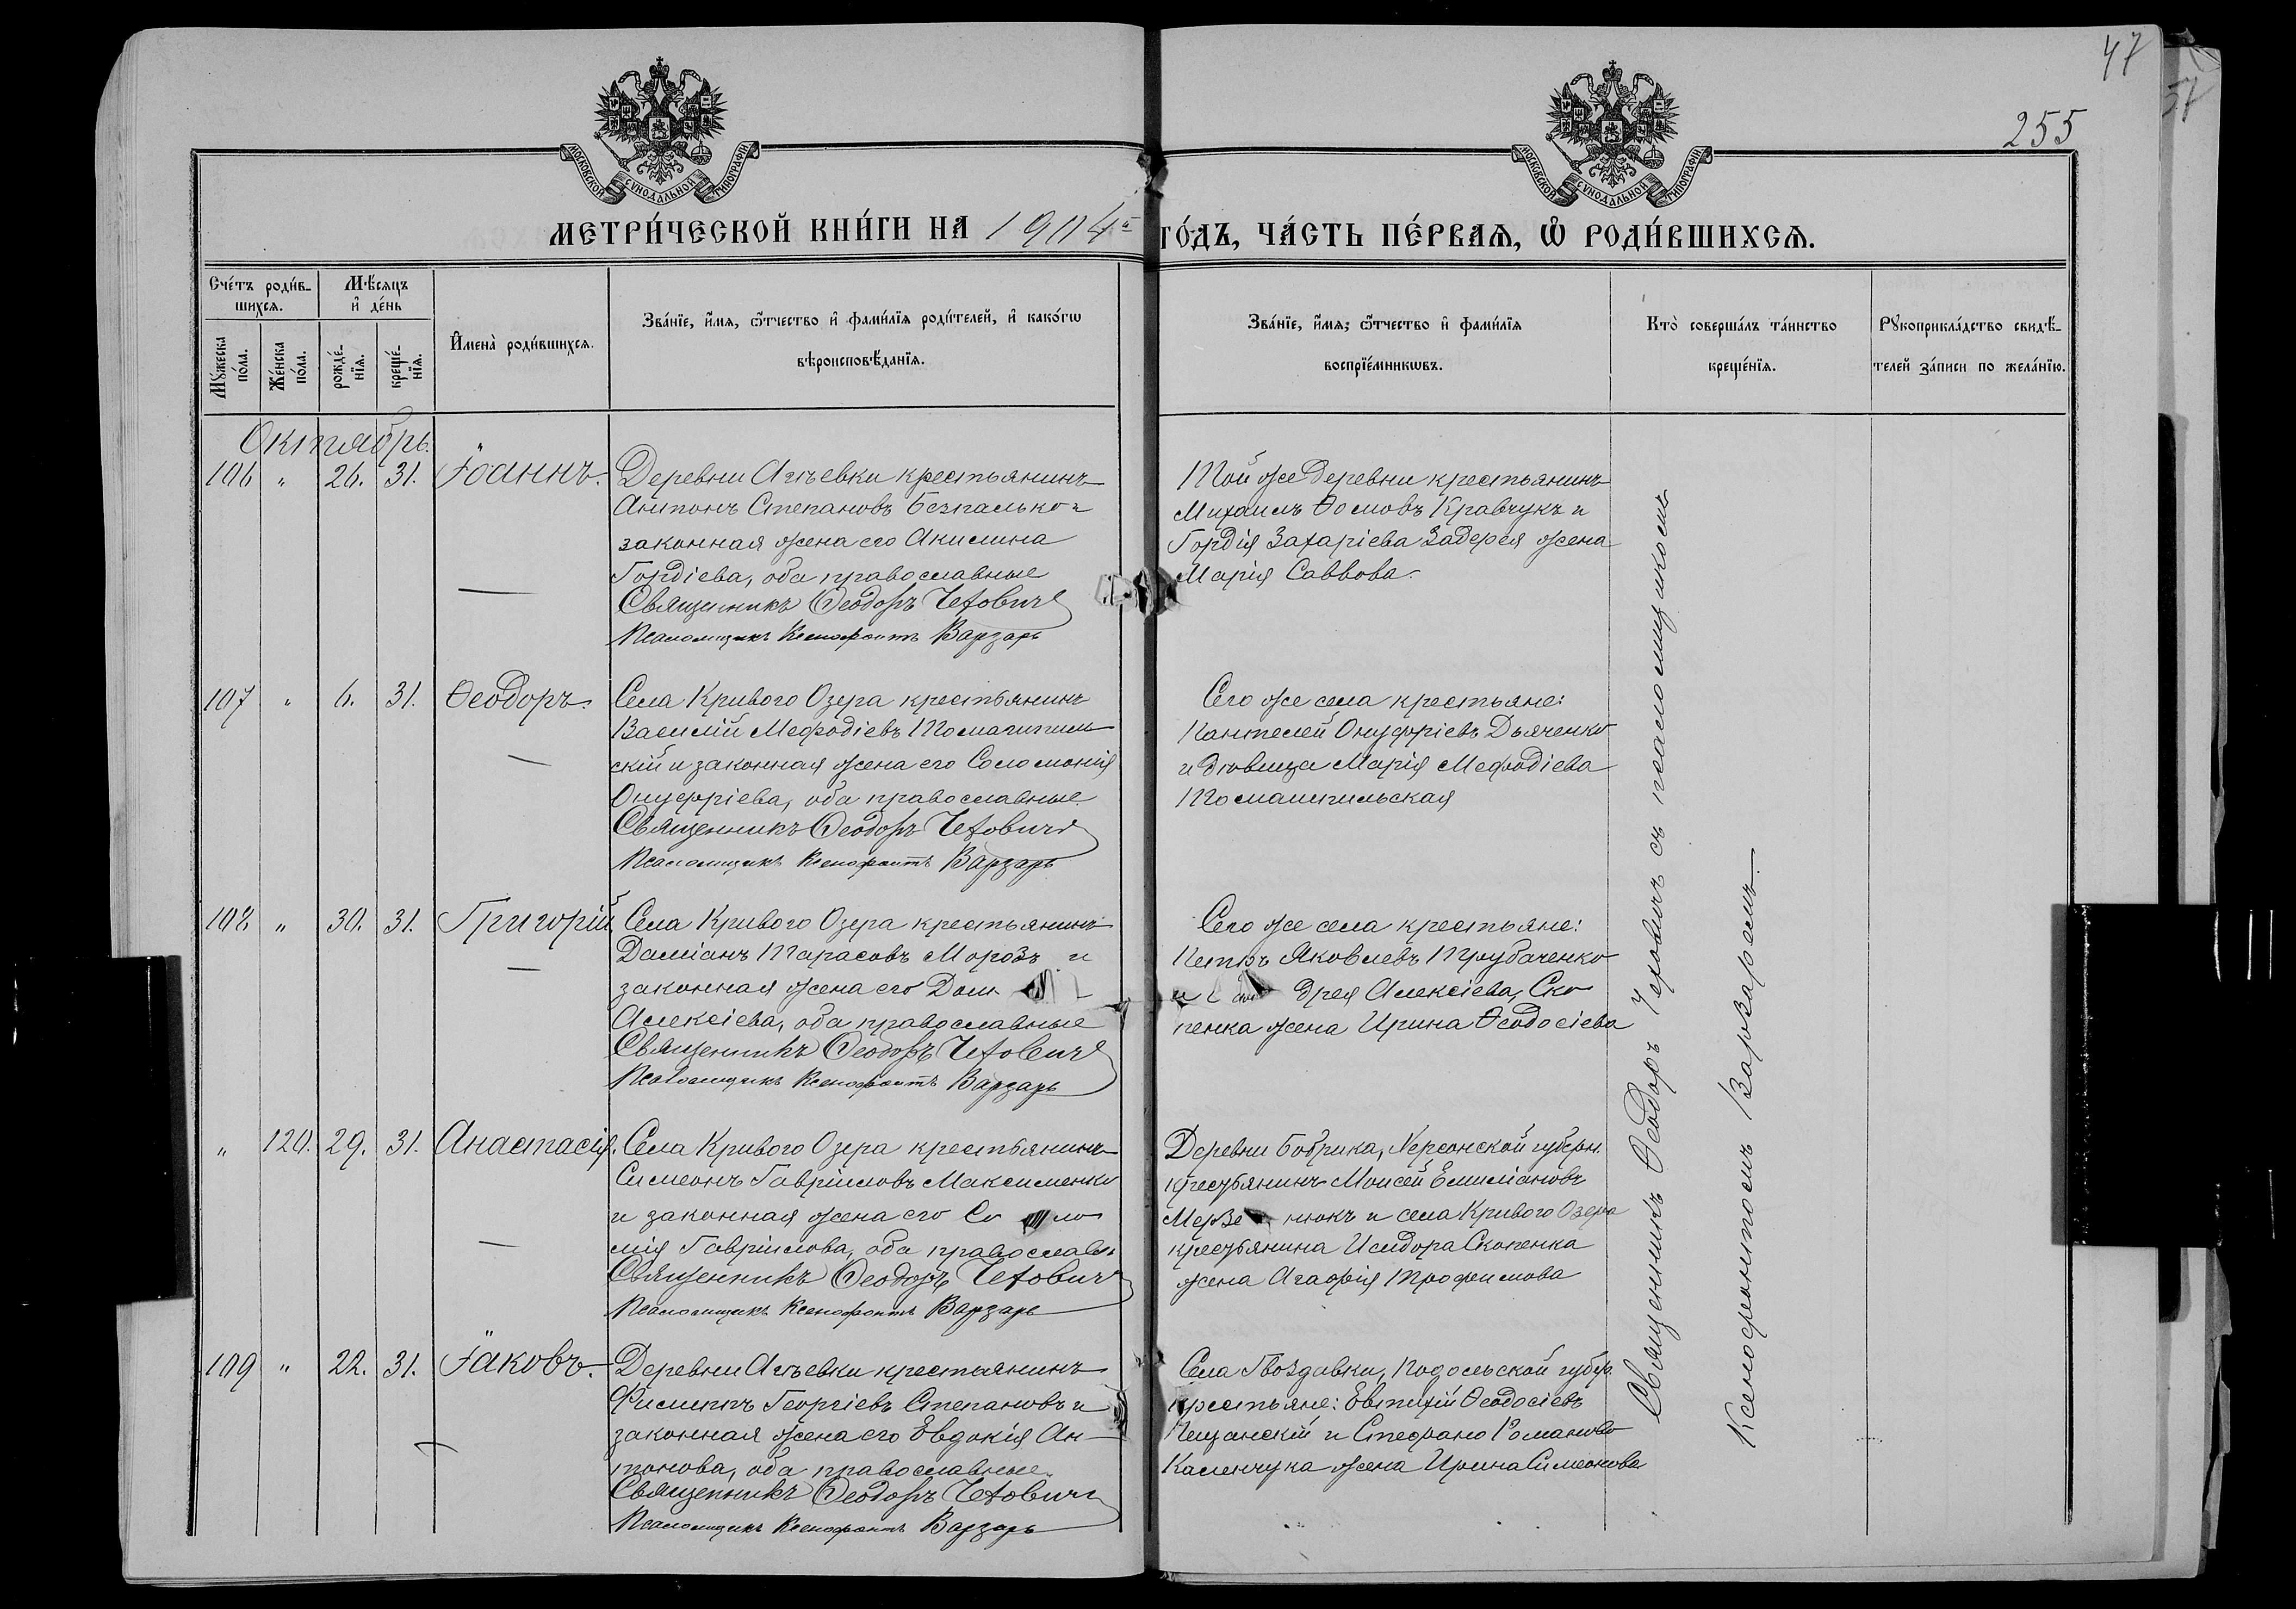 47
255
МОСКОВСКОЙ СѴНОДАЛЬНОЙ ТИПОГРАФІИ
МОСКОВСКОЙ СѴНОДАЛЬНОЙ ТИПОГРАФІИ
МЕТРИ́ЧЕСКОЙ КНИ́ГИ НА 1904й ГО́ДЪ, ЧА́СТЬ ПЕ́РВАѦ, Ѡ҆ РОДИ́ВШИХСѦ.
Сче́тъ роди́в-
шихсѧ.
Мѣ́сѧцъ
и҆ де́нь
Мꙋ́жеска по́ла.
Же́нска по́ла.
рожде́-
нїѧ.
креще́-
нїѧ.
И҆мена̀ роди́вшихсѧ.
Зва́нїе, и҆́мѧ, ѻ҆́тчество и҆ фами́лїѧ роди́телей, и҆ како́гѡ
вѣроисповѣ́данїѧ.
Зва́нїе, и҆́мѧ, ѻ҆́тчество и҆ фами́лїѧ
воспрїе́мникѡвъ.
Кто̀ соверша́лъ та́инство
креще́нїѧ.
Рꙋкоприкла́дство свидѣ́-
телей за́писи по жела́нїю.
Октябрь.
106 " 26. 31. Іоаннъ.
Деревни Агѣевки крестьянинъ
Антонъ Степановъ Безпалько и
законная жена его Акилина
Гордіева, оба православные
Священникъ Ѳеодоръ Чеховичъ
Псаломщикъ Ксенофонтъ Варзарь
Той же деревни крестьянинъ
Михаилъ Ѳомовъ Кравчукъ и
Гордія Захаріева Задерея жена
Марія Саввова.
107 " 6. 31. Ѳеодоръ.
Села Кривого Озера крестьянинъ
Василій Меѳодіевъ
скій и законная жена его Соломонія
Онуфріева, оба православные
Священникъ Ѳеодоръ Чеховичъ
Псаломщикъ Ксенофонтъ Варзарь
Сего же села крестьяне:
Пантелей Онуфріевъ Дьяченко
и дѣвица Марія Меѳодіева
108 " 30. 31. Григорій
Села Кривого Озера крестьянинъ
Даміанъ Тарасовъ Морозъ и
законная жена его
Алексіева, оба православные
Священникъ Ѳеодоръ Чеховичъ
Псаломщикъ Ксенофонтъ Варзарь
Сего же села крестьяне:
Петръ Яковлевъ Трубаченко
и дрея Алексіева Ско
пенка жена Ирина Ѳеодосіева
" 120. 29. 31. Анастасія.
Села Кривого Озера крестьянинъ
Симеонъ Гавріиловъ Максименко
и законная жена его Со ло
мія Гавріилова, оба православн.
Священникъ Ѳеодоръ Чеховичъ
Псаломщикъ Ксенофонтъ Варзарь
Деревни Бобрика, Херсонской губерн.
крестьянинъ Моисей Емиліановъ
Мерзе нюкъ и села Кривого Озера
крестьянина Исидора Скопенка
жена Агафія Трофимова
109 " 22. 31. Іаковъ.
Деревни Агѣевки крестьянинъ
Филиппъ Георгіевъ Степановъ и
законная жена его Евдокія Ан-
тонова, оба православные.
Священникъ Ѳеодоръ Чеховичъ
Псаломщикъ Ксенофонтъ Варзарь
Села Гвоздавки, Подольской губер.
крестьяне: Евтихій Ѳеодосіевъ
Пещанскій и Стефана Романова
Каленчука жена Ирина Симеонова
Священникъ Ѳеодоръ Чеховичъ съ псаломщикомъ
Ксенофонтомъ Варзаремъ.